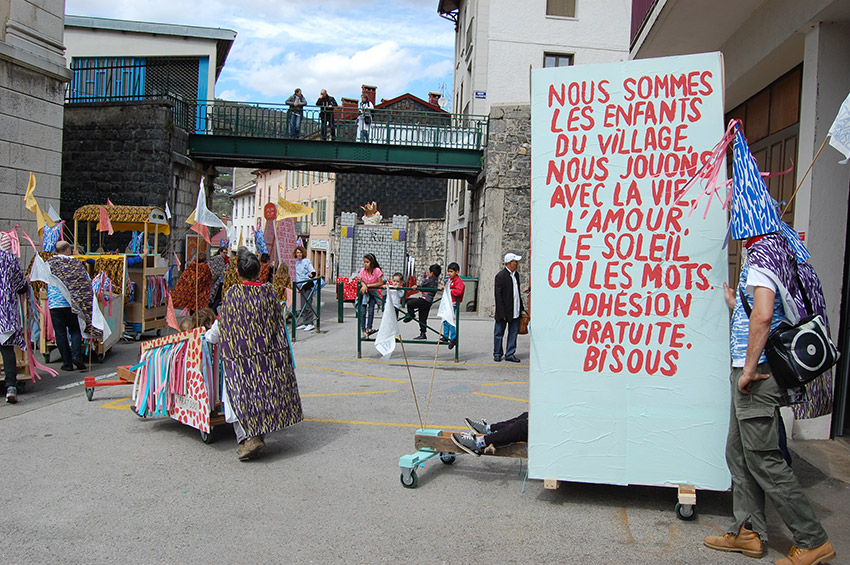 NOUS SOMMES
LES ENFANTS
DU VILLAGE.
NOUS JOUONS
AVEC LA VIE,
L'AMOUR,
LE SOLEIL
OU LES MOTS.
ADHÉSION
GRATUITE.
BISOUS